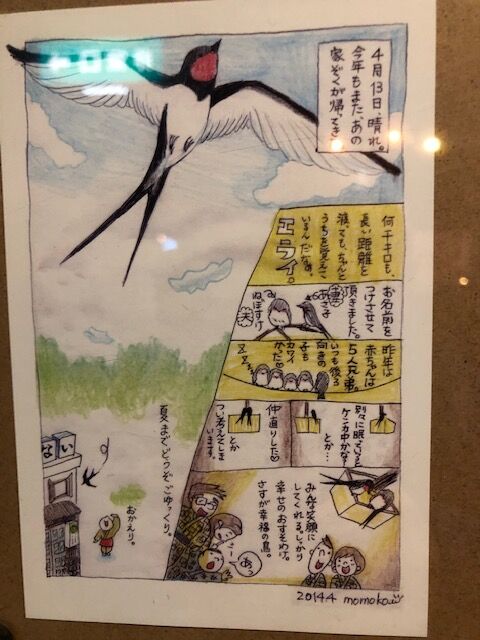 4月13日、晴れ。
今年もまた、あの
家ぞくが帰ってき
何千キロも、
長い距離を
渡っても、ちゃんと
うちを覚えて
いるんだなぁ。
エライ。
お名前を
つけさせて
頂きました。
妻
あさ子
ねぼすけ
夫
昨年は
赤ちゃんは
5人兄弟。
いつも後ろ
向きの
子も
カワイ
かった♡
ZZZ
別々に眠っていると
ケンカ中かな?
とか…
仲直りした♡
とか
つい考えてしま
います。
みんな笑顔に
してくれる。しっかり
幸せのおすそわけ。
さすが幸福の鳥。
夏までどうぞごゆっくり。
おかえり。
ない
2014.4 momoko